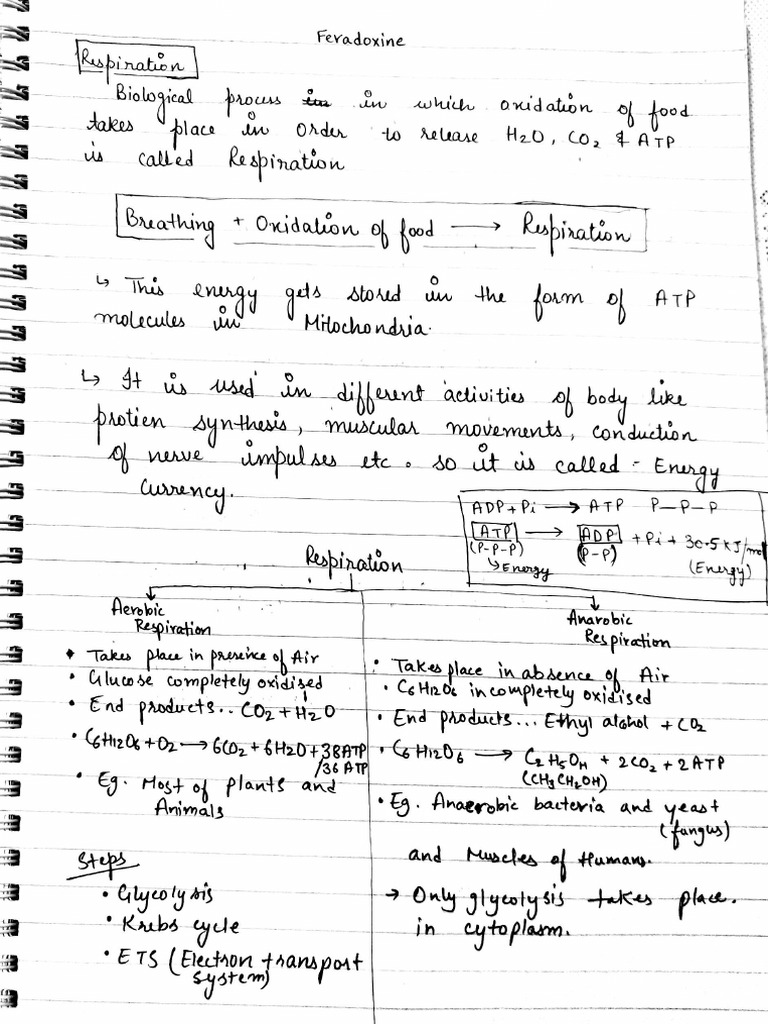 Feradoxine
Respiration
Biological process in in which oxidation of food
takes place in order to release H2O, CO2 & ATP
is called Respiration
Breathing + Oxidation of food → Respiration
↳ This energy gets stored in the form of ATP
molecules in Mitochondria.
↳ It is used in different activities of body like
protien synthesis, muscular movements, conduction
of nerve impulses etc. so it is called - Energy
currency.
ADP + Pi → ATP P-P-P
ATP → ADP + Pi + 30.5 kJ/mol
(P-P-P) (P-P) (Energy)
↳ Energy
Respiration
Aerobic
Respiration
• Takes place in presence of Air
• Glucose completely oxidised
• End products.. CO2 + H2O
• C6H12O6 + O2 → 6CO2 + 6H2O + 38ATP
/36 ATP
• Eg. Most of plants and
Animals
Steps
• Glycolysis
• Krebs cycle
• ETS (Electron transport
system)
Anarobic
Respiration
• Takes place in absence of Air
• C6H12O6 incompletely oxidised
• End products... Ethyl alohol + CO2
• C6H12O6 → C2H5OH + 2CO2 + 2ATP
(CH3CH2OH)
• Eg. Anaerobic bacteria and yeast
(fungus)
and Muscles of Humans.
→ Only glycolysis takes place.
in cytoplasm.